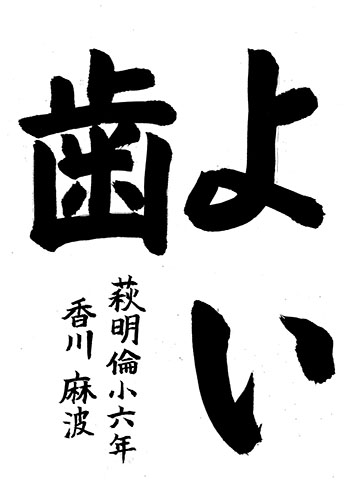 よい
歯
萩明倫小六年
香川麻波